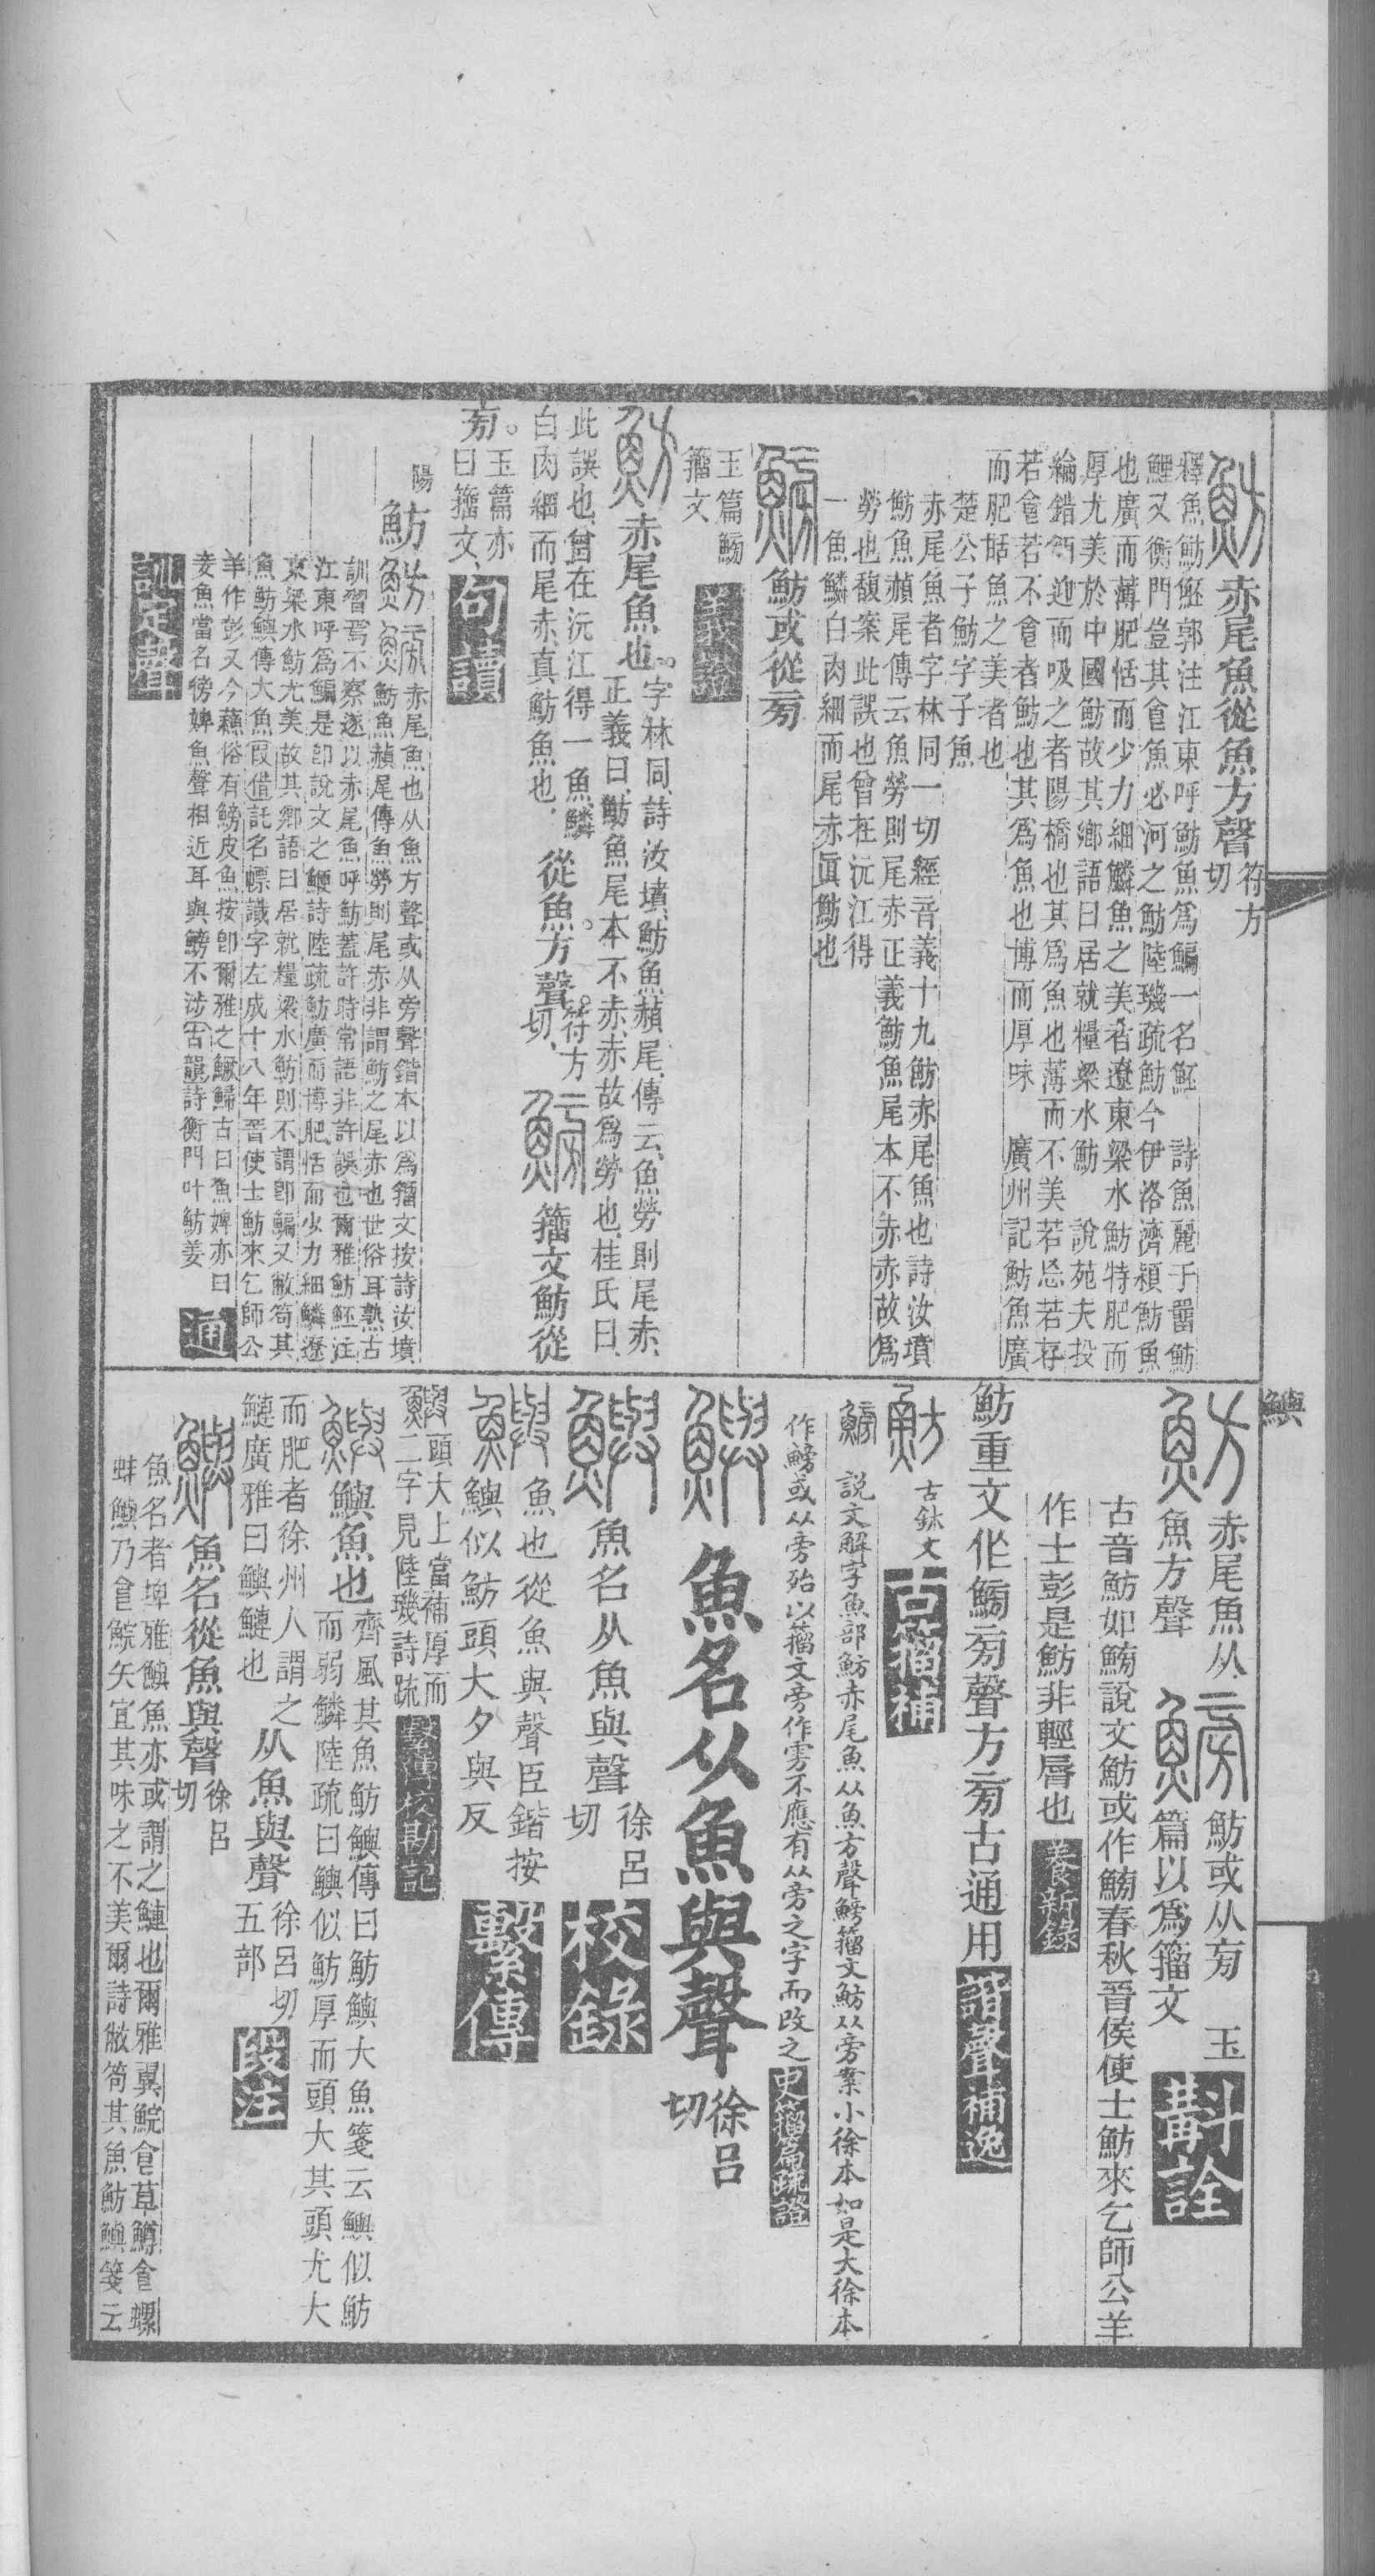 魴 赤尾魚從魚方聲符方切
釋魚魴魾郭注江東呼魴魚爲鯿一名魾 詩魚麗于罶魴
鯉又衡門豈其食魚必河之魴陸璣疏魴今伊洛濟潁魴魚
也廣而薄肥恬而少力細鱗魚之美者遼東梁水魴特肥而
厚尤美於中國魴故其鄉語曰居就糧梁水魴 說苑夫投
綸錯餌迎而吸之者陽橋也其爲魚也薄而不美若亡若存
若食若不食者魴也其爲魚也博而厚味 廣州記魴魚廣
而肥甛魚之美者也
楚公子魴字子魚
赤尾魚者字林同一切經音義十九魴赤尾魚也詩汝墳
魴魚赬尾傳云魚勞則尾赤正義魴魚尾本不赤赤故爲
勞也馥案此誤也曾在沅江得
一魚鱗白肉細而尾赤眞魴也
鰟 魴或從㫄
玉篇鰟
籀文 義證
魴 赤尾魚也。字林同、詩汝墳、魴魚赬尾、傳云、魚勞則尾赤、
正義曰、魴魚尾本不赤、赤故爲勞也、桂氏曰、
此誤也、曾在沅江得一魚、鱗
白肉細而尾赤、真魴魚也、 從魚。方聲。符方切、 鰟 籀文魴從
㫄。玉篇亦曰籀文、 句讀
陽 魴 魴 鰟 赤尾魚也从魚方聲或从旁聲鍇本以爲籀文按詩汝墳
魴魚赬尾傳魚勞則尾赤非謂魴之尾赤也世俗耳熟古
訓習焉不察遂以赤尾魚呼魴蓋許時常語非許誤也爾雅魴魾注
江東呼爲鯿是卽說文之鯾詩陸疏魴廣而博肥恬而少力細鱗遼
東梁水魴尤美故其鄉語曰居就糧梁水魴則不謂卽鯿又敝笱其
魚魴鱮傳大魚叚借託名幖識字左成十八年晉使士魴來乞師公
羊作彭又今蘇俗有鰟皮魚按卽爾雅之鱖鯞古曰魚婢亦曰
妾魚當名傍婢魚聲相近耳與鰟不涉古韻詩衡門叶魴姜 通
訓定聲
鱮
魴 赤尾魚从魚方聲 鰟 魴或从㫄 玉篇以爲籀文 斠詮
古音魴如鰟說文魴或作鰟春秋晉侯使士魴來乞師公羊
作士彭是魴非輕脣也 養新錄
魴重文作鰟㫄聲方㫄古通用 諧聲補逸
魴 古鉥文 古籀補
鰟 說文解字魚部魴赤尾魚从魚方聲鰟籀文魴从旁案小徐本如是大徐本
作鰟或从旁殆以籀文旁作雱不應有从旁之字而改之 史籀篇疏證
鱮 魚名从魚與聲徐呂切
鱮 魚名从魚與聲徐呂切 校錄
鱮 魚也從魚與聲臣鍇按
鱮似魴頭大夕與反 繫傳
鱮 頭大上當補厚而
二字見陸璣詩疏 繫傳校勘記
鱮 鱮魚也 齊風其魚魴鱮傳曰魴鱮大魚箋云鱮似魴
而弱鱗陸疏曰鱮似魴厚而頭大其頭尤大
而肥者徐州人謂之
鰱廣雅曰鱮鰱也 从魚與聲 徐呂切五部 段注
鱮 魚名從魚與聲徐呂切
魚名者埤雅鱮魚亦或謂之鰱也爾雅翼鯇食草鱒食螺
蚌鱮乃食鯇矢宜其味之不美爾詩敝笱其魚魴鱮箋云